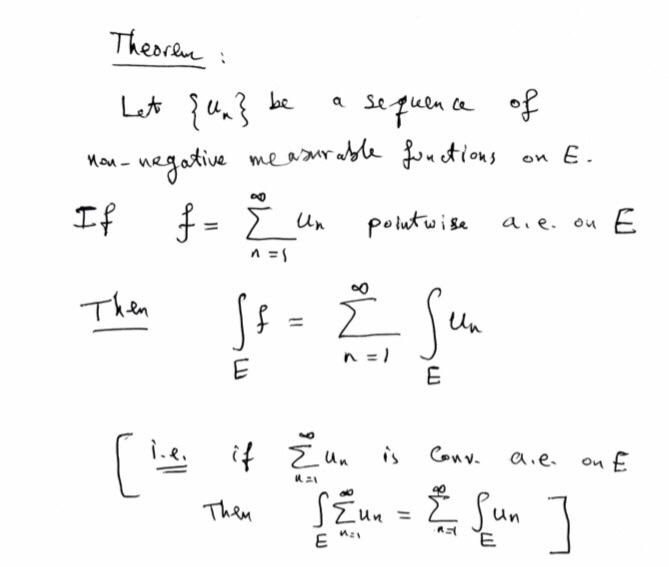 Theorem :
Let {uₙ} be a sequence of
non-negative measurable functions on E.
If f = ∑_{n=1}^{∞} uₙ pointwise a.e. on E
Then ∫_E f = ∑_{n=1}^{∞} ∫_E uₙ
[ i.e. if ∑_{n=1}^{∞} uₙ is Conv. a.e. on E
Then ∫_E ∑_{n=1}^{∞} uₙ = ∑_{n=1}^{∞} ∫_E uₙ ]